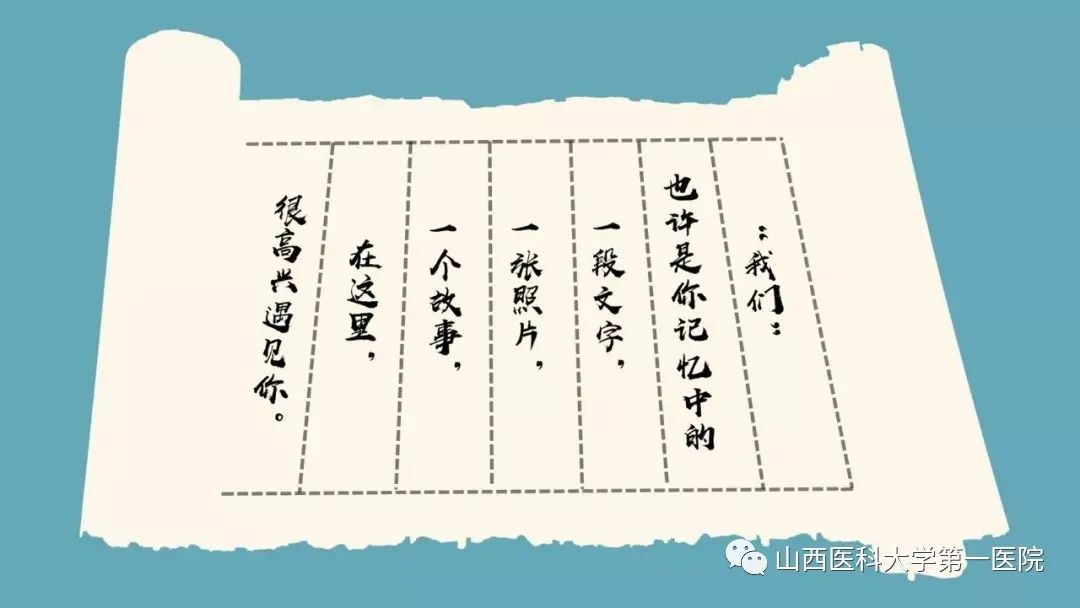 ：我们：
也许是你记忆中的
一段文字，
一张照片，
一个故事，
在这里，
很高兴遇见你。
山西医科大学第一医院